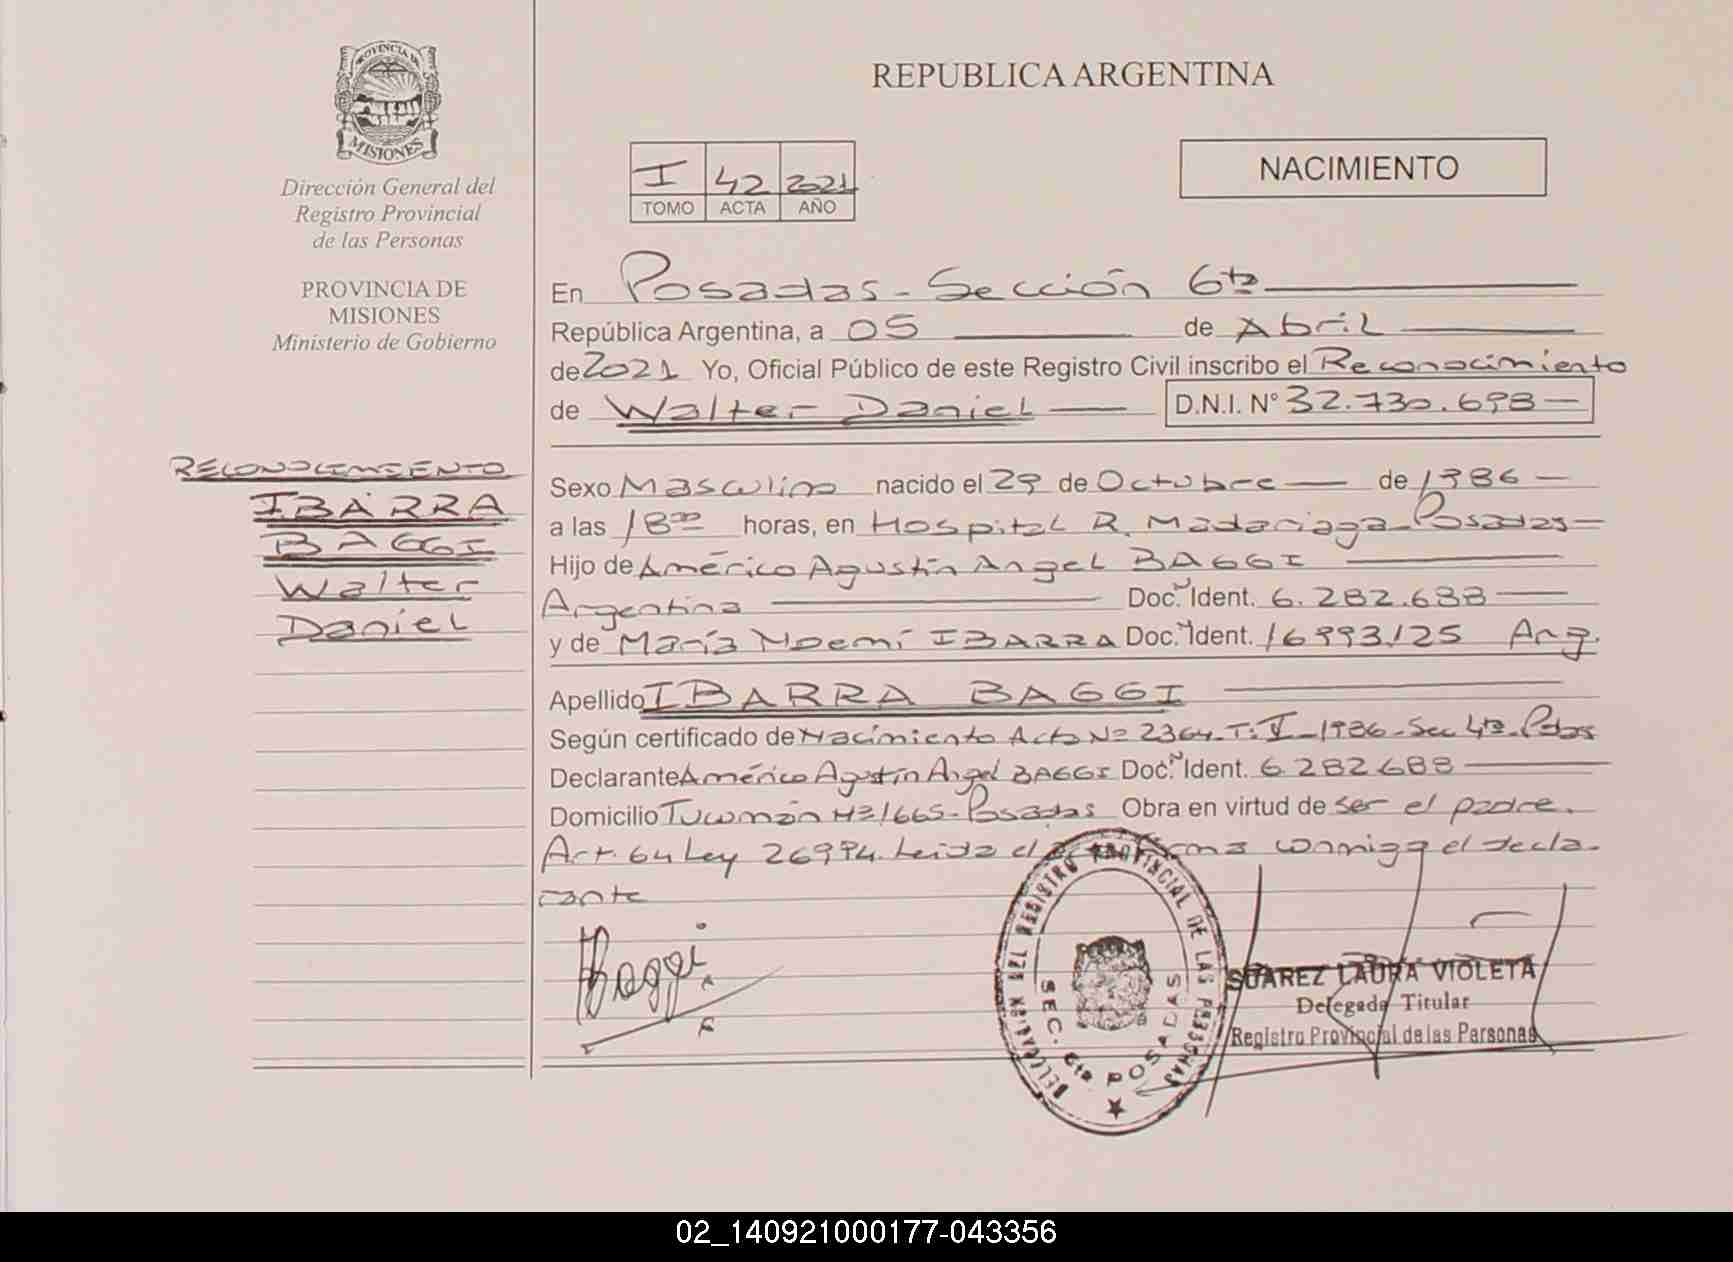 PROVINCIA DE
MISIONES
Dirección General del
Registro Provincial
de las Personas
PROVINCIA DE
MISIONES
Ministerio de Gobierno
RECONOCIMIENTO
IBARRA
BAGGI
Walter
Daniel
REPUBLICA ARGENTINA
I 42 2021
TOMO ACTA AÑO
NACIMIENTO
En Posadas - Sección 6ta
República Argentina, a 05 de Abril
de 2021 Yo, Oficial Público de este Registro Civil inscribo el Reconocimiento
de Walter Daniel D.N.I. N° 32.730.698
Sexo Masculino nacido el 29 de Octubre de 1986
a las 18 horas, en Hospital R. Madariaga - Posadas
Hijo de Américo Agustín Angel BAGGI
Argentina Doc. Ident. 6.282.688
y de María Noemí IBARRA Doc. Ident. 16993125 Arg.
Apellido IBARRA BAGGI
Según certificado de Nacimiento Acta Nº 2364-T: V-1986-Sec 4ta-Pdas
Declarante Américo Agustín Angel BAGGI Doc. Ident. 6.282688
Domicilio Tucumán Nº 1665-Posadas Obra en virtud de ser el padre.
Art. 64 Ley 26994. Leída el conmigo el decla-
rante
Baggi
DELEGACION DEL REGISTRO PROVINCIAL DE LAS PERSONAS
SEC. 6ta POSADAS
SUAREZ LAURA VIOLETA
Delegada Titular
Registro Provincial de las Personas
02_140921000177-043356